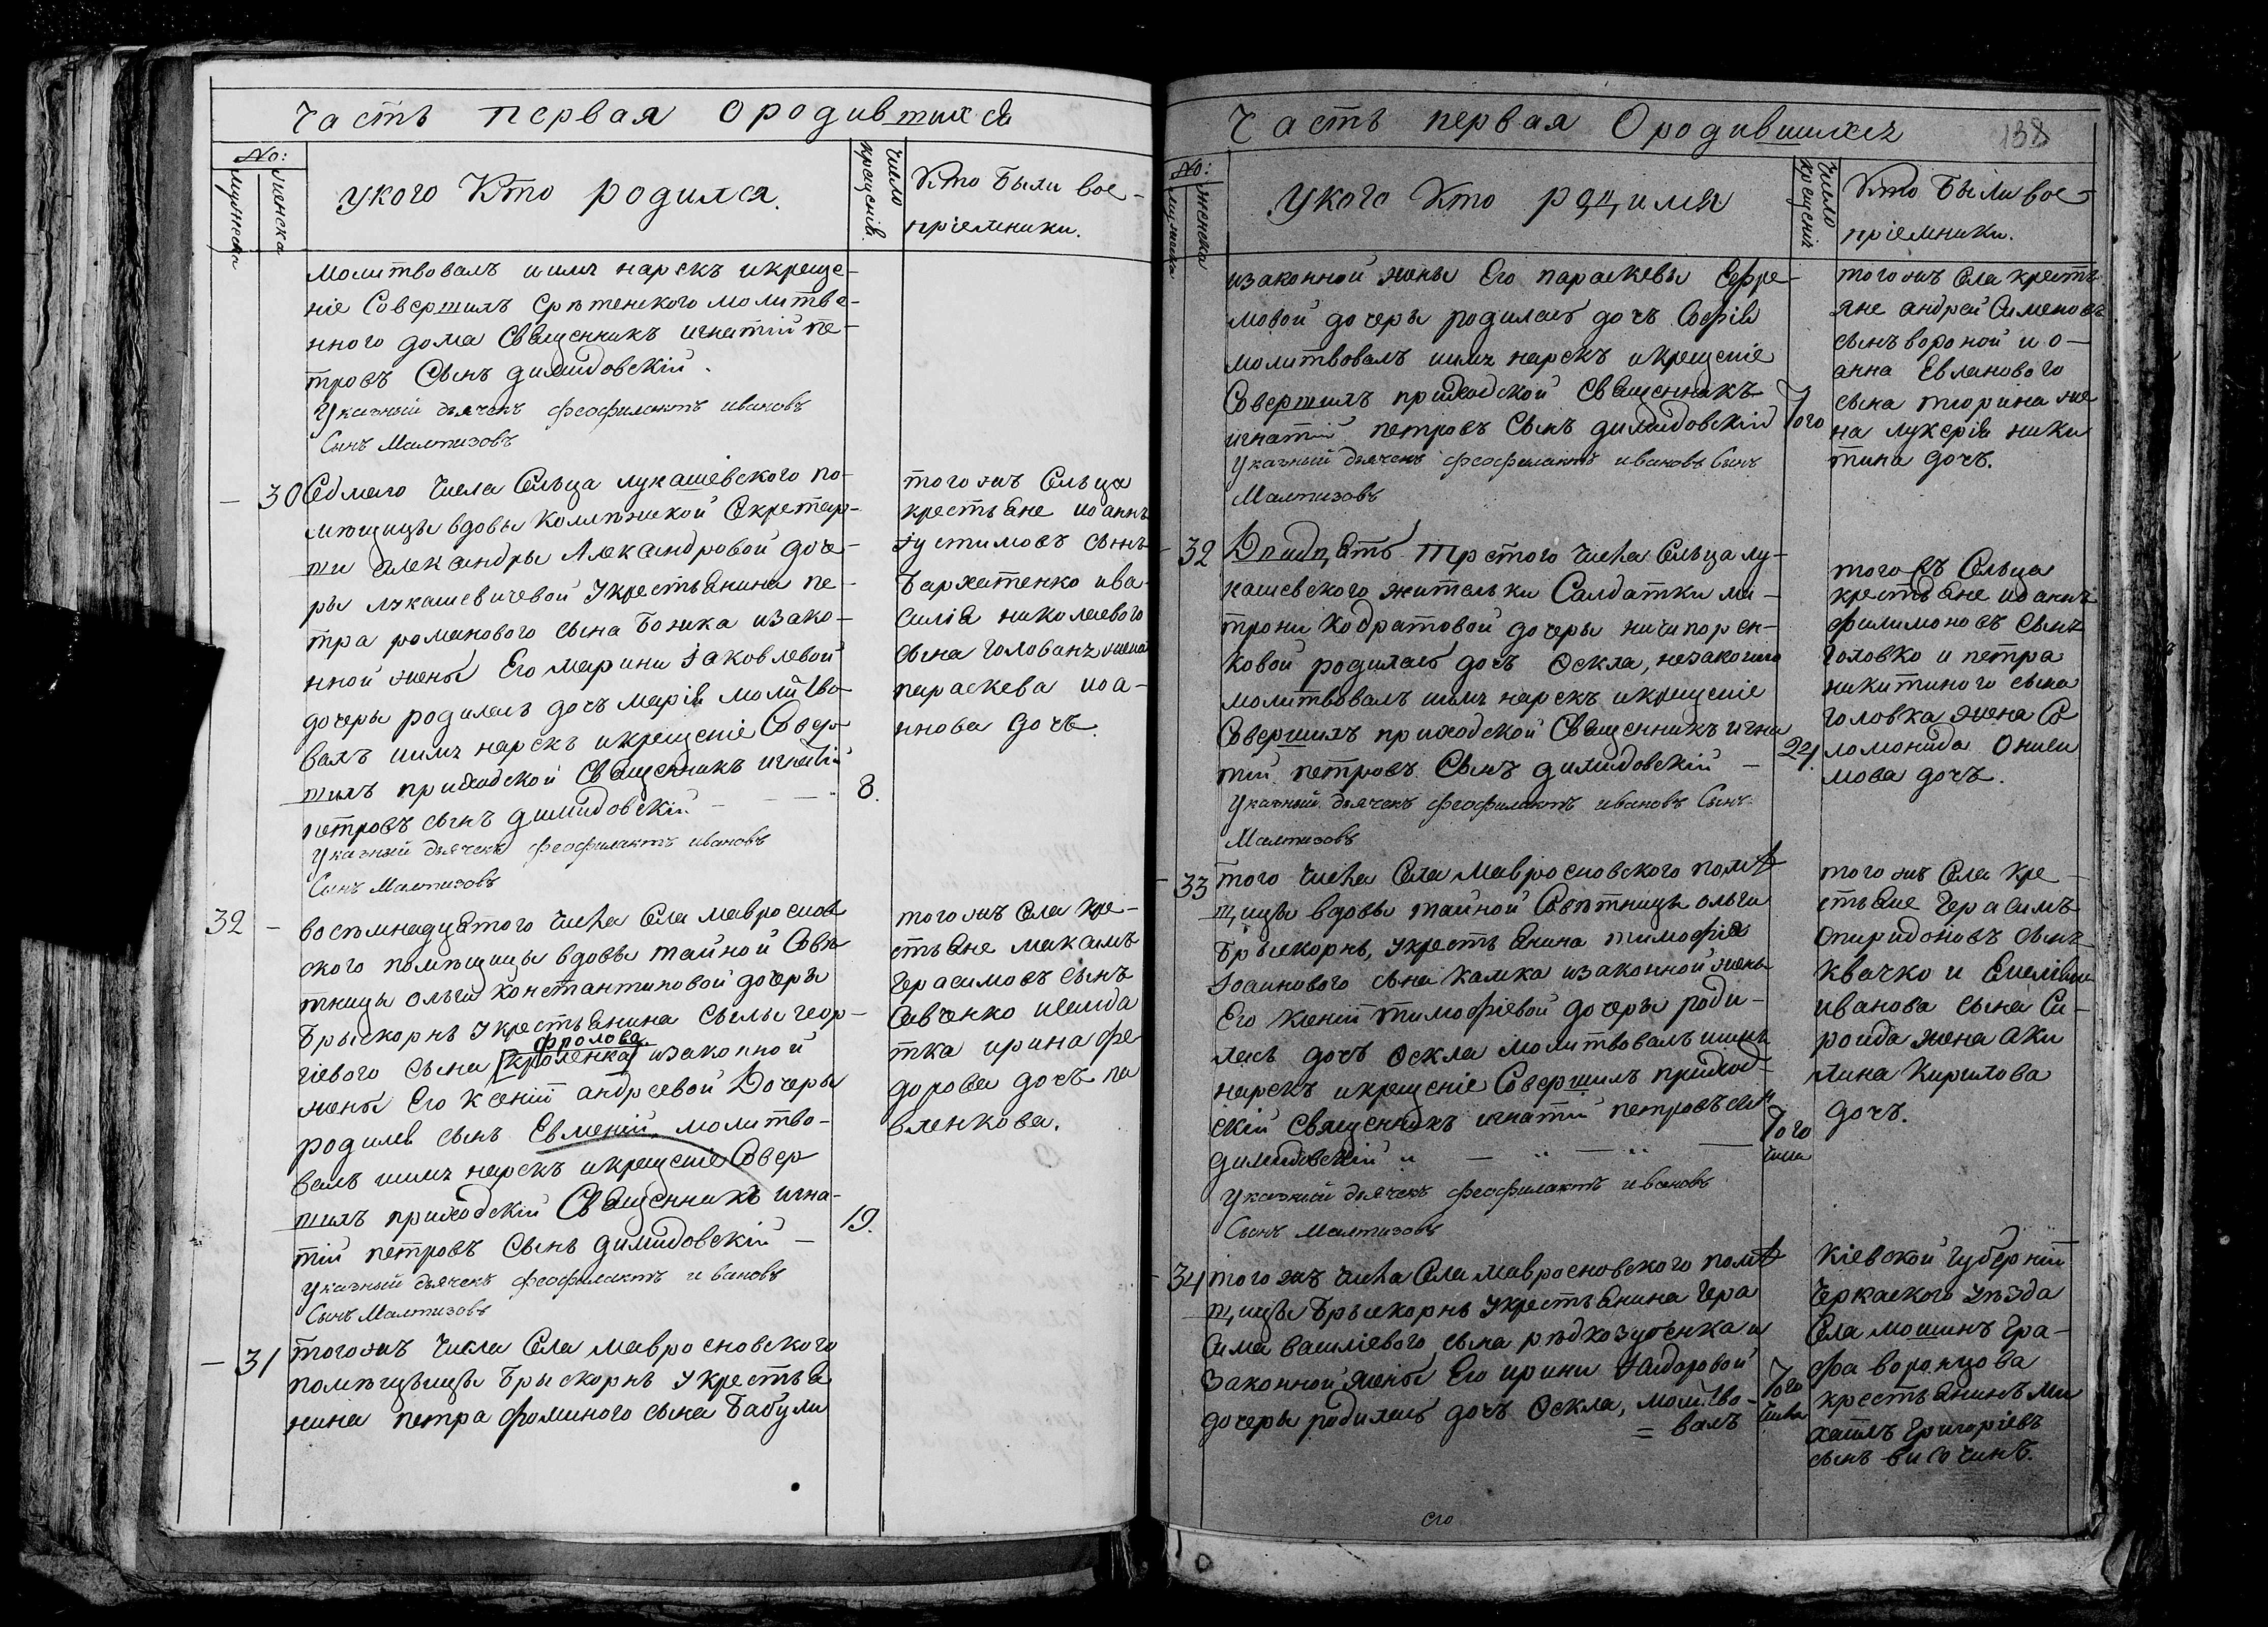 Часть первая Ородившихся
No:
мужеска
женска
укого Кто родился.
число крещенія.
Кто были вос-
пріемники.
молитвовалъ иимя нарекъ икреще-
ніе Совершилъ Срѣтенского молитве-
нного дома Священникъ игнатій пе-
тровъ Сынъ димидовскій.
Указный дьячекъ феофилактъ ивановъ
Сынъ Малтизовъ
- 30 Седмаго числа Сельца лукашевского по-
мѣщицы вдовы Колѣжской Секретар-
ши александры Александровой доче-
ры лукашевичевой Укрестьянина пе-
тра романового сына Божка изако-
нной жены Его марини Іаковлевой
дочеры родилась дочъ марія молитво-
валъ иимя нарекъ икрещеніе Совер-
шилъ приходской Священникъ игнатій
петровъ сынъ димидовскій - - -
8.
Указный дьячекъ феофилактъ ивановъ
Сынъ Малтизовъ
тогожъ Сельца
крестьяне иоаннъ
Іустимовъ сынъ
Бархатенко ива-
силія николаевого
сына голованя жена
параскева иоа-
ннова дочъ.
32 - восѣмнадцятого числа Села мавроснов-
ского помѣщицы вдовы тайной Совѣ-
тницы ольги константиновой дочеры
Брыскорнъ Укрестьянина Силы геор-
фролова
гіевого сына [кроленка] изаконной
жены Его ксеніи андреевой Дочеры
родился сынъ Евменій, молитво-
валъ иимя нарекъ икрещеніе Совер
шилъ приходскій Священникъ игна-
тій петровъ Сынъ димидовскій -
19.
Указный дьячекъ феофилактъ ивановъ
Сынъ Малтизовъ
тогожъ Села кре-
стьяне максимъ
Герасимовъ сынъ
Савченко исолда
тка ирина фе
дорова дочъ па
вленкова.
- 31 тогожъ числа Села мавросновского
помѣщицы Брыскорнъ Укрестья
нина петра фоминого сына Бабули
Часть первая Ородившихся
138
No:
мужеска
женска
укого Кто родился
число крещенія
Кто были вос-
пріемники.
изаконной жены Его параскевы Ефре-
мовой дочеры родилась дочъ Софія
молитвовалъ иимя нарекъ икрещеніе
Совершилъ приходской Священникъ
игнатій петровъ Сынъ димидовскій
того
Указный дьячекъ феофилактъ ивановъ Сынъ
Малтизовъ
тогожъ Села кресть
яне андрей Сименовъ
сынъ вороной и о-
анна Евланового
сына тюрина же
на лукерія ники
тина дочъ.
- 32 Двадцять третого числа Сельца лу-
кашевского жительки Салдатки ма-
трони Кодратовой дочеры ничипорен-
ковой родилась дочъ Фекла, незаконно
молитвовалъ иимя нарекъ икрещеніе
Совершилъ приходской Священникъ игна
тій петровъ Сынъ димидовскій -
24.
Указный дьячекъ феофилактъ ивановъ Сынъ
Малтизовъ
того въ Сельца
крестьяне иоаннъ
филимоновъ сынъ
головко и петра
никитиного сына
головка жена Со
ломонида Ониси
мова дочъ.
- 33 того числа Села Мавросновского помѣ
щицы вдовы тайной Совѣтницы ольги
Брыскорнъ, укрестьянина тимофія
Іоаннового сына камка изаконной жены
Его ксеніи тимофіевой дочеры роди-
лась дочъ Фекла молитвовалъ иимя
нарекъ икрещеніе Совершилъ приход-
скій Священникъ игнатій петровъ сынъ
димидовскій
того
числа
Указный дьячекъ феофилактъ ивановъ
Сынъ Малтизовъ
тогожъ Села кре-
стьяне Герасимъ
Спиридоновъ сынъ
квачко и
иванова сына Си-
роида жена аки
лина Кирилова
дочъ.
- 34 тогожъ числа Села мавросновского помѣ
щицы Брыскорнъ Укрестьянина Гера
сима василіевого сына рѣдкозубенка и
законной жены Его ирини Ісидоровой
дочеры родилась дочъ Фекла, молитво-
= валъ
того
числа
Кіевской Губерніи
Черкаского уѣзда
Села мошинъ Гра-
фа воронцова
крестьянинъ ми
хаилъ Григоріевъ
сынъ височинъ.
его